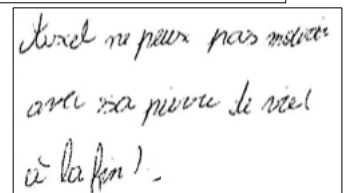 ne peux pas mourir
avec sa pierre de
à la fin ! .